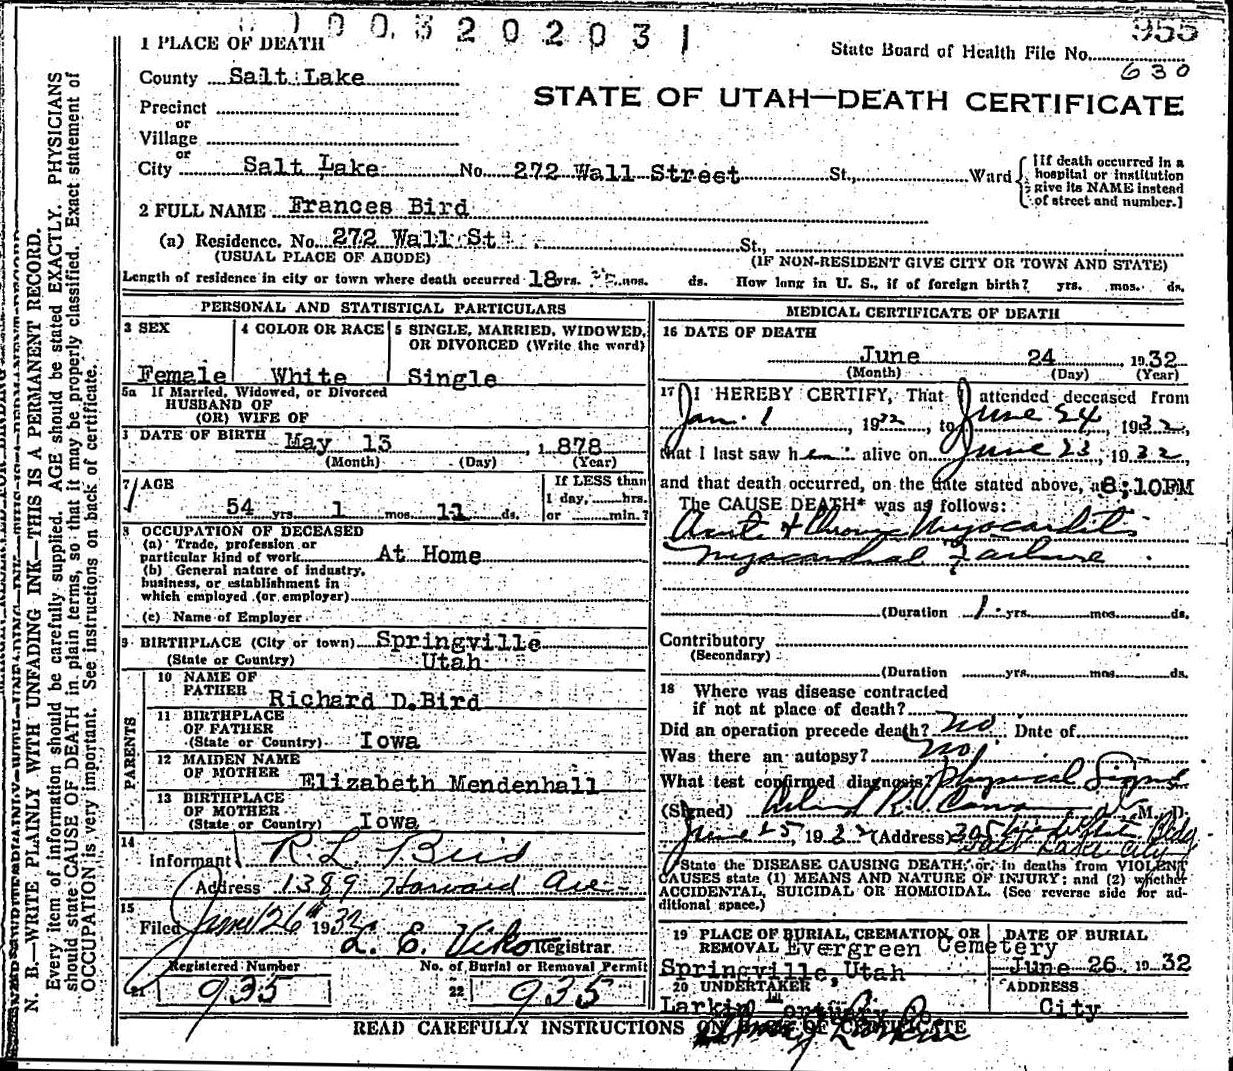 0 1 0 0 3 2 0 2 0 3 1
955
1 PLACE OF DEATH
State Board of Health File No.
630
County Salt Lake
STATE OF UTAH—DEATH CERTIFICATE
Precinct
or
Village
or
City Salt Lake No. 272 Wall Street St., Ward
[If death occurred in a
hospital or institution
give its NAME instead
of street and number.]
2 FULL NAME Frances Bird
(a) Residence. No. 272 Wall St. St.,
(USUAL PLACE OF ABODE) (IF NON-RESIDENT GIVE CITY OR TOWN AND STATE)
Length of residence in city or town where death occurred 18 yrs. mos. ds. How long in U. S., if of foreign birth? yrs. mos. ds.
PERSONAL AND STATISTICAL PARTICULARS
3 SEX
Female
4 COLOR OR RACE
White
5 SINGLE, MARRIED, WIDOWED,
OR DIVORCED (Write the word)
Single
5a If Married, Widowed, or Divorced
HUSBAND OF
(OR) WIFE OF
DATE OF BIRTH May 13, 1878
(Month) (Day) (Year)
7 AGE
54 yrs. 1 mos. 11 ds.
If LESS than
1 day, hrs.
or min.?
8 OCCUPATION OF DECEASED
(a) Trade, profession or
particular kind of work At Home
(b) General nature of industry,
business, or establishment in
which employed (or employer)
(c) Name of Employer
9 BIRTHPLACE (City or town) Springville
(State or Country) Utah
PARENTS
10 NAME OF
FATHER Richard D. Bird
11 BIRTHPLACE
OF FATHER
(State or Country) Iowa
12 MAIDEN NAME
OF MOTHER Elizabeth Mendenhall
13 BIRTHPLACE
OF MOTHER
(State or Country) Iowa
14
Informant R. L. Bird
Address 1389 Harvard Ave
15
Filed June 26th 1932 L. E. Viko Registrar.
Registered Number
21 935
No. of Burial or Removal Permit
22 935
MEDICAL CERTIFICATE OF DEATH
16 DATE OF DEATH
June 24 1932
(Month) (Day) (Year)
17 I HEREBY CERTIFY, That I attended deceased from
Jan. 1, 1932, to June 24, 1932,
that I last saw her alive on June 23, 1932,
and that death occurred, on the date stated above, at 8;10PM
The CAUSE DEATH* was as follows:
Acute & Chronic Myocarditis
Myocardial Failure
(Duration 1 yrs. mos. ds.
Contributory
(Secondary)
(Duration yrs. mos. ds.
18 Where was disease contracted
if not at place of death?
Did an operation precede death? no Date of
Was there an autopsy? no
What test confirmed diagnosis? Physical Signs
(Signed) M. D.
June 25, 1932 (Address) 305 Bldg
Salt Lake City
*State the DISEASE CAUSING DEATH; or, in deaths from VIOLENT
CAUSES state (1) MEANS AND NATURE OF INJURY; and (2) whether
ACCIDENTAL, SUICIDAL OR HOMICIDAL. (See reverse side for ad-
ditional space.)
19 PLACE OF BURIAL, CREMATION, OR
REMOVAL Evergreen Cemetery
Springville, Utah
DATE OF BURIAL
June 26 1932
20 UNDERTAKER
Larkin Mortuary Co.
ADDRESS
City
READ CAREFULLY INSTRUCTIONS ON BACK OF CERTIFICATE
N. B.—WRITE PLAINLY WITH UNFADING INK—THIS IS A PERMANENT RECORD.
Every item of information should be carefully supplied. AGE should be stated EXACTLY. PHYSICIANS
should state CAUSE OF DEATH in plain terms, so that it may be properly classified. Exact statement of
OCCUPATION is very important. See instructions on back of certificate.